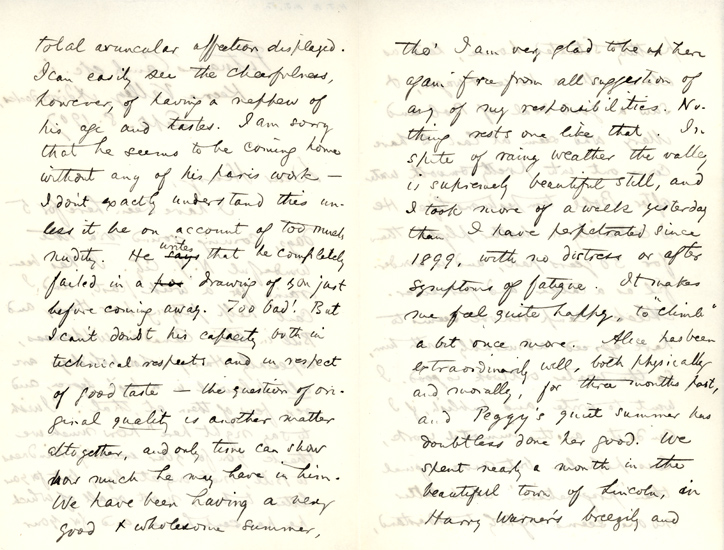 total avuncular affection displayed.
I can easily see the cheerfulness,
however, of having a nephew of
his age and tastes. I am sorry
that he seems to be coming home
without any of his paris work —
I dont exactly understand this un-
less it be on account of too much
nudity. He says writes that he completely
failed in a por drawing of you just
before coming away. Too bad! But
I can't doubt his capacity both in
technical respects and in respect
of good taste — the question of ori-
ginal quality is another matter
altogether, and only time can show
how much he may have in him.
We have been having a very
good & wholesome summer,
tho' I am very glad to be up here
again free from all suggestion of
any of my responsibilities. No-
thing rests one like that. In
spite of rainy weather the valley
is supremely beautiful still, and
I took more of a walk yesterday
than I have perpetrated since
1899, with no distress or after
symptoms of fatigue. It makes
me feel quite happy, to "climb"
a bit once more. Alice has been
extraordinarily well, both physically
and morally, for three months past,
and Peggy's quiet summer has
doubtless done her good. We
spent nearly a month in the
beautiful town of Lincoln, in
Harry Warner's breezily and